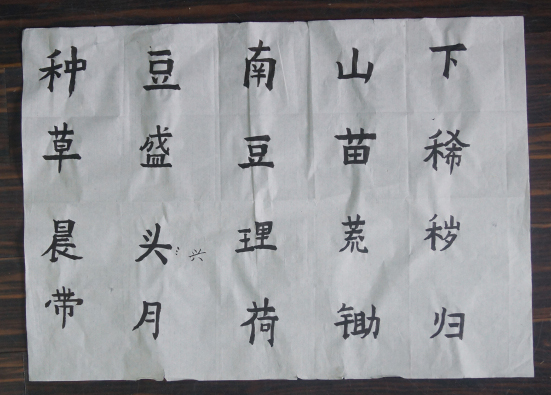 种豆南山下
草盛豆苗稀
晨头兴理荒秽
带月荷锄归